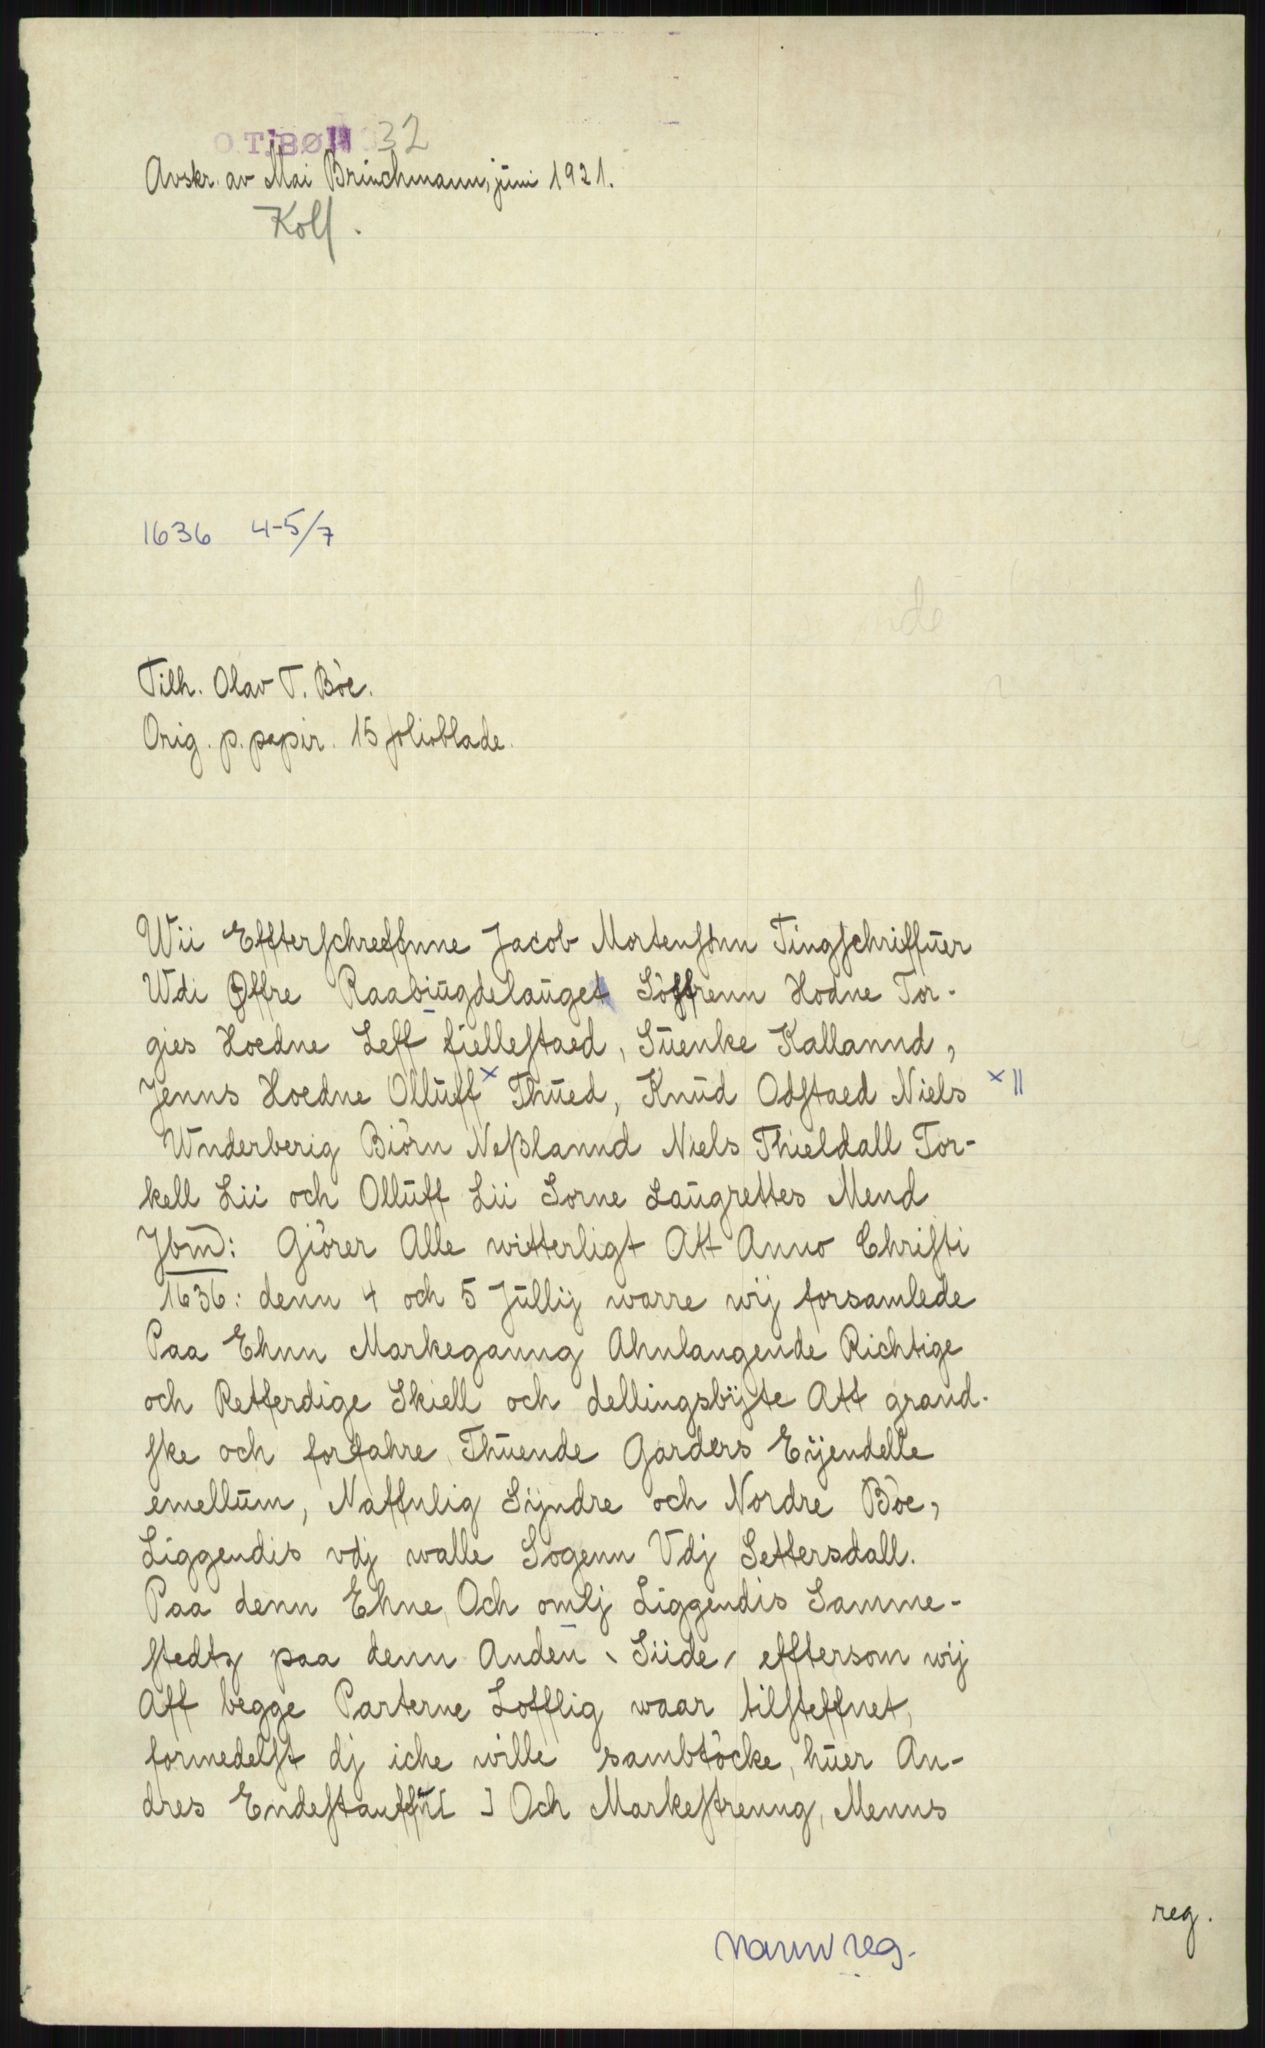 O.T. BØ 32
Avskr. av Mai Brinchmann, juni 1921.
Koll.
1636 4-5/7
Tilh. Olav T. Bòe.
Orig. p. papir. 15 folioblade.
Wii Effterschreffnne Jacob Mortenssønn Tingschriffuer
Wdi Øffre Raabiugdelauget Sòffrenn Hodne Tor-
gies Hoedne Leff fiellestaed, Suenke Kallannd,
Jenns Hoedne Olluff x Thued, Knud Odstaed Niels x ||
Wnderberig Biòrn Neßlannd Niels Thieldall Tor-
kell Lii och Olluff Lii Sorne Laugrettes Mend
Jbm̄: Giòrer Alle witterligt Att Anno Christi
1636: denn 4 och 5 Jullij warre wij forsamlede
Paa Ehnn Markeganng Ahnlangende Richtige
och Retferdige Skiell och dellingsbÿte Att grand-
ske och forfahre Thuende Garders Eÿendelle
emellum, Naffnlig Sÿndre och Nordre Bòe,
Liggendis vdj walle Sogenn Vdj Settersdall.
Paa denn Ehne Och omlj Liggendis Samme-
stedtz paa denn Anden Siide, efftersom wij
Aff begge Parterne Lofflig waar tilsteffnet,
formedelst dj iche wille sambtòcke, huer An-
dres Endestauffu[ ] Och Markestrenng, Menns
reg.
navnreg.